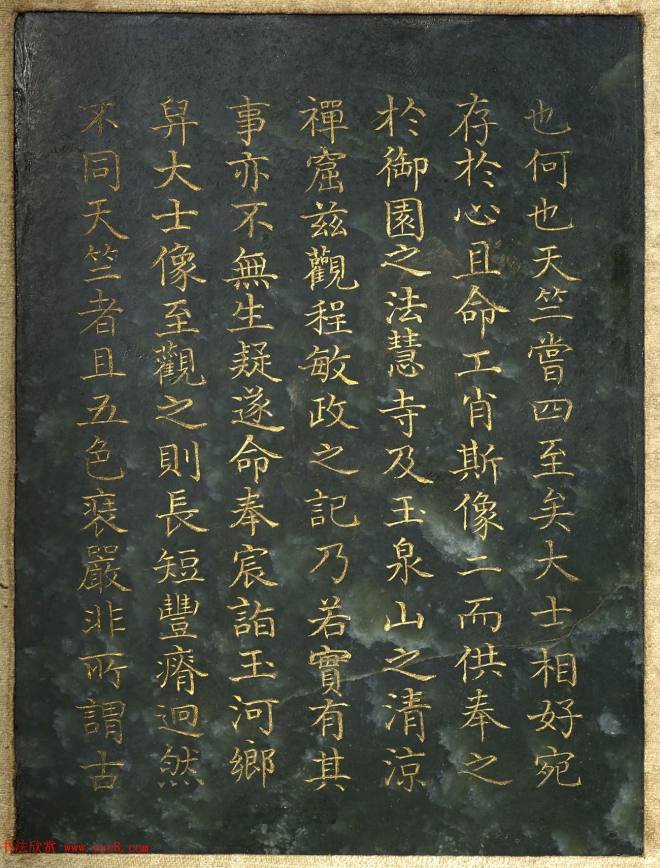 也何也天竺嘗四至矣大士相好宛
存於心且命工肖斯像二而供奉之
於御園之法慧寺及玉泉山之清涼
禪窟茲觀程敏政之記乃若實有其
事亦不無生疑遂命奉宸詣玉河鄉
舁大士像至觀之則長短豐瘠迥然
不同天竺者且五色裝嚴非所謂古
书法欣赏 www.yac8.com